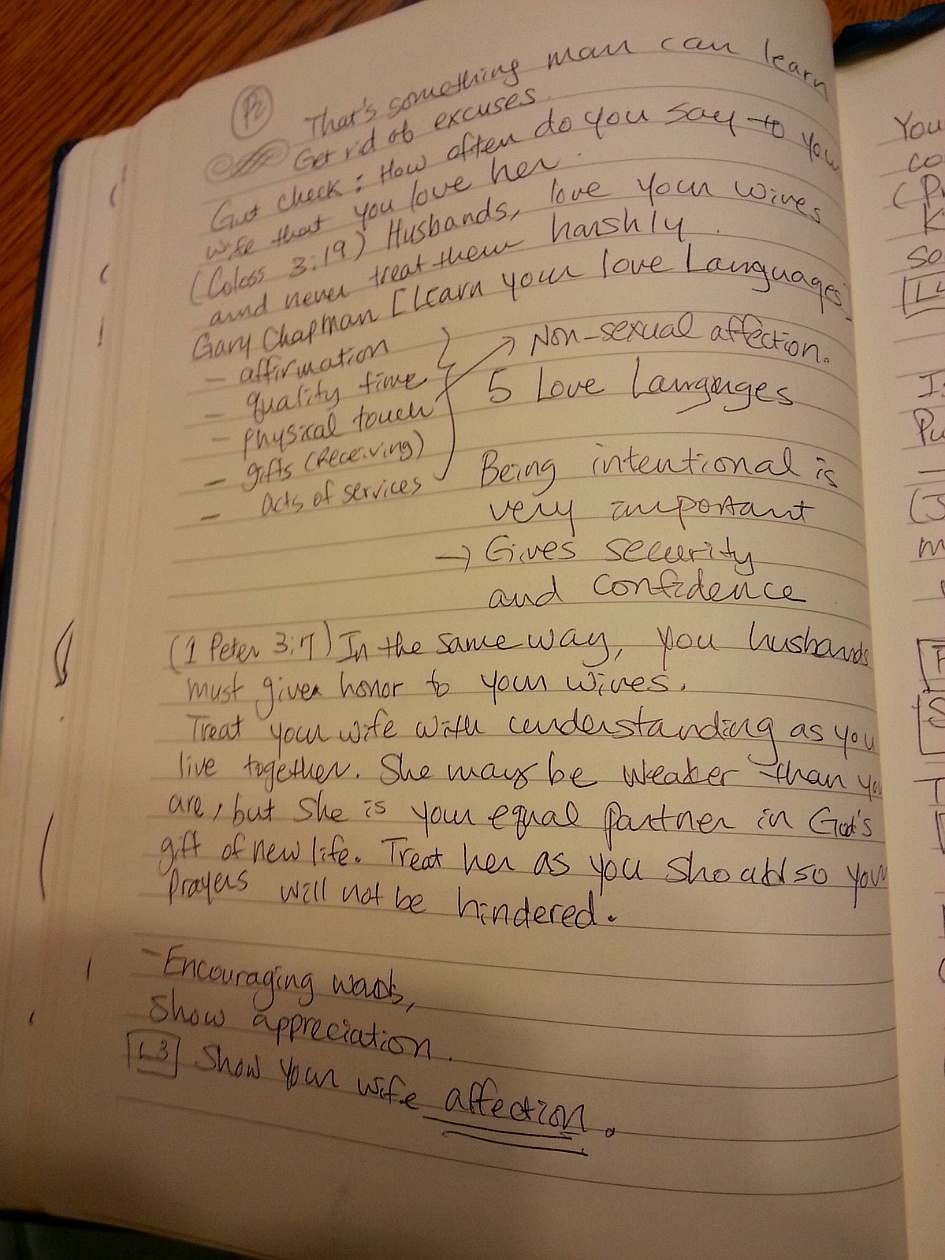 P2
That's something man can learn
Get rid of excuses
Gut check: How often do you say to you
wife that you love her.
(Coloss 3:19) Husbands, love your wives
and never treat them harshly.
Gary Chapman [Learn your love Languages]
- affirmation
- quality time
- physical touch
- gifts (Receiving)
- acts of services
Non-sexual affection.
5 Love Languages
Being intentional is
very important
→ Gives security
and confidence
(1 Peter 3:7) In the same way, you husbands
must give honor to your wives.
Treat your wife with understanding as you
live together. She may be weaker than you
are, but she is your equal partner in God's
gift of new life. Treat her as you should so your
prayers will not be hindered.
- Encouraging words,
Show appreciation.
[L3] Show your wife affection.
You
co
So
Pu